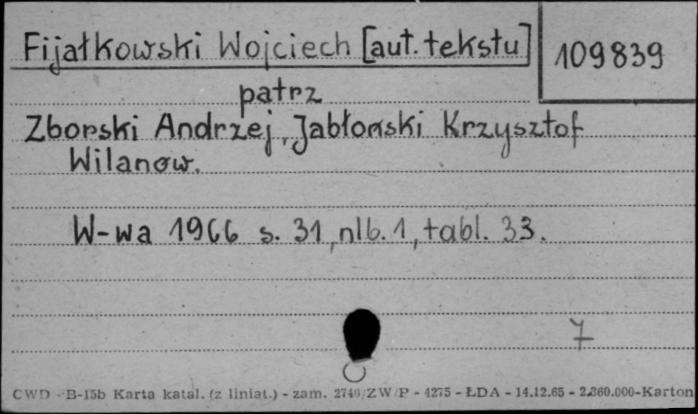 Fijałkowski Wojciech [aut. tekstu] 109839
patrz
Zborski Andrzej, Jabłoński Krzysztof
Wilanow.
W-wa 1966 s. 31, nlb. 1, tabl. 33.
7
CWD - B-15b Karta katal. (z liniat.) - zam. 2740/ZW/P - 4275 - ŁDA - 14.12.65 - 2.360.000-Karton